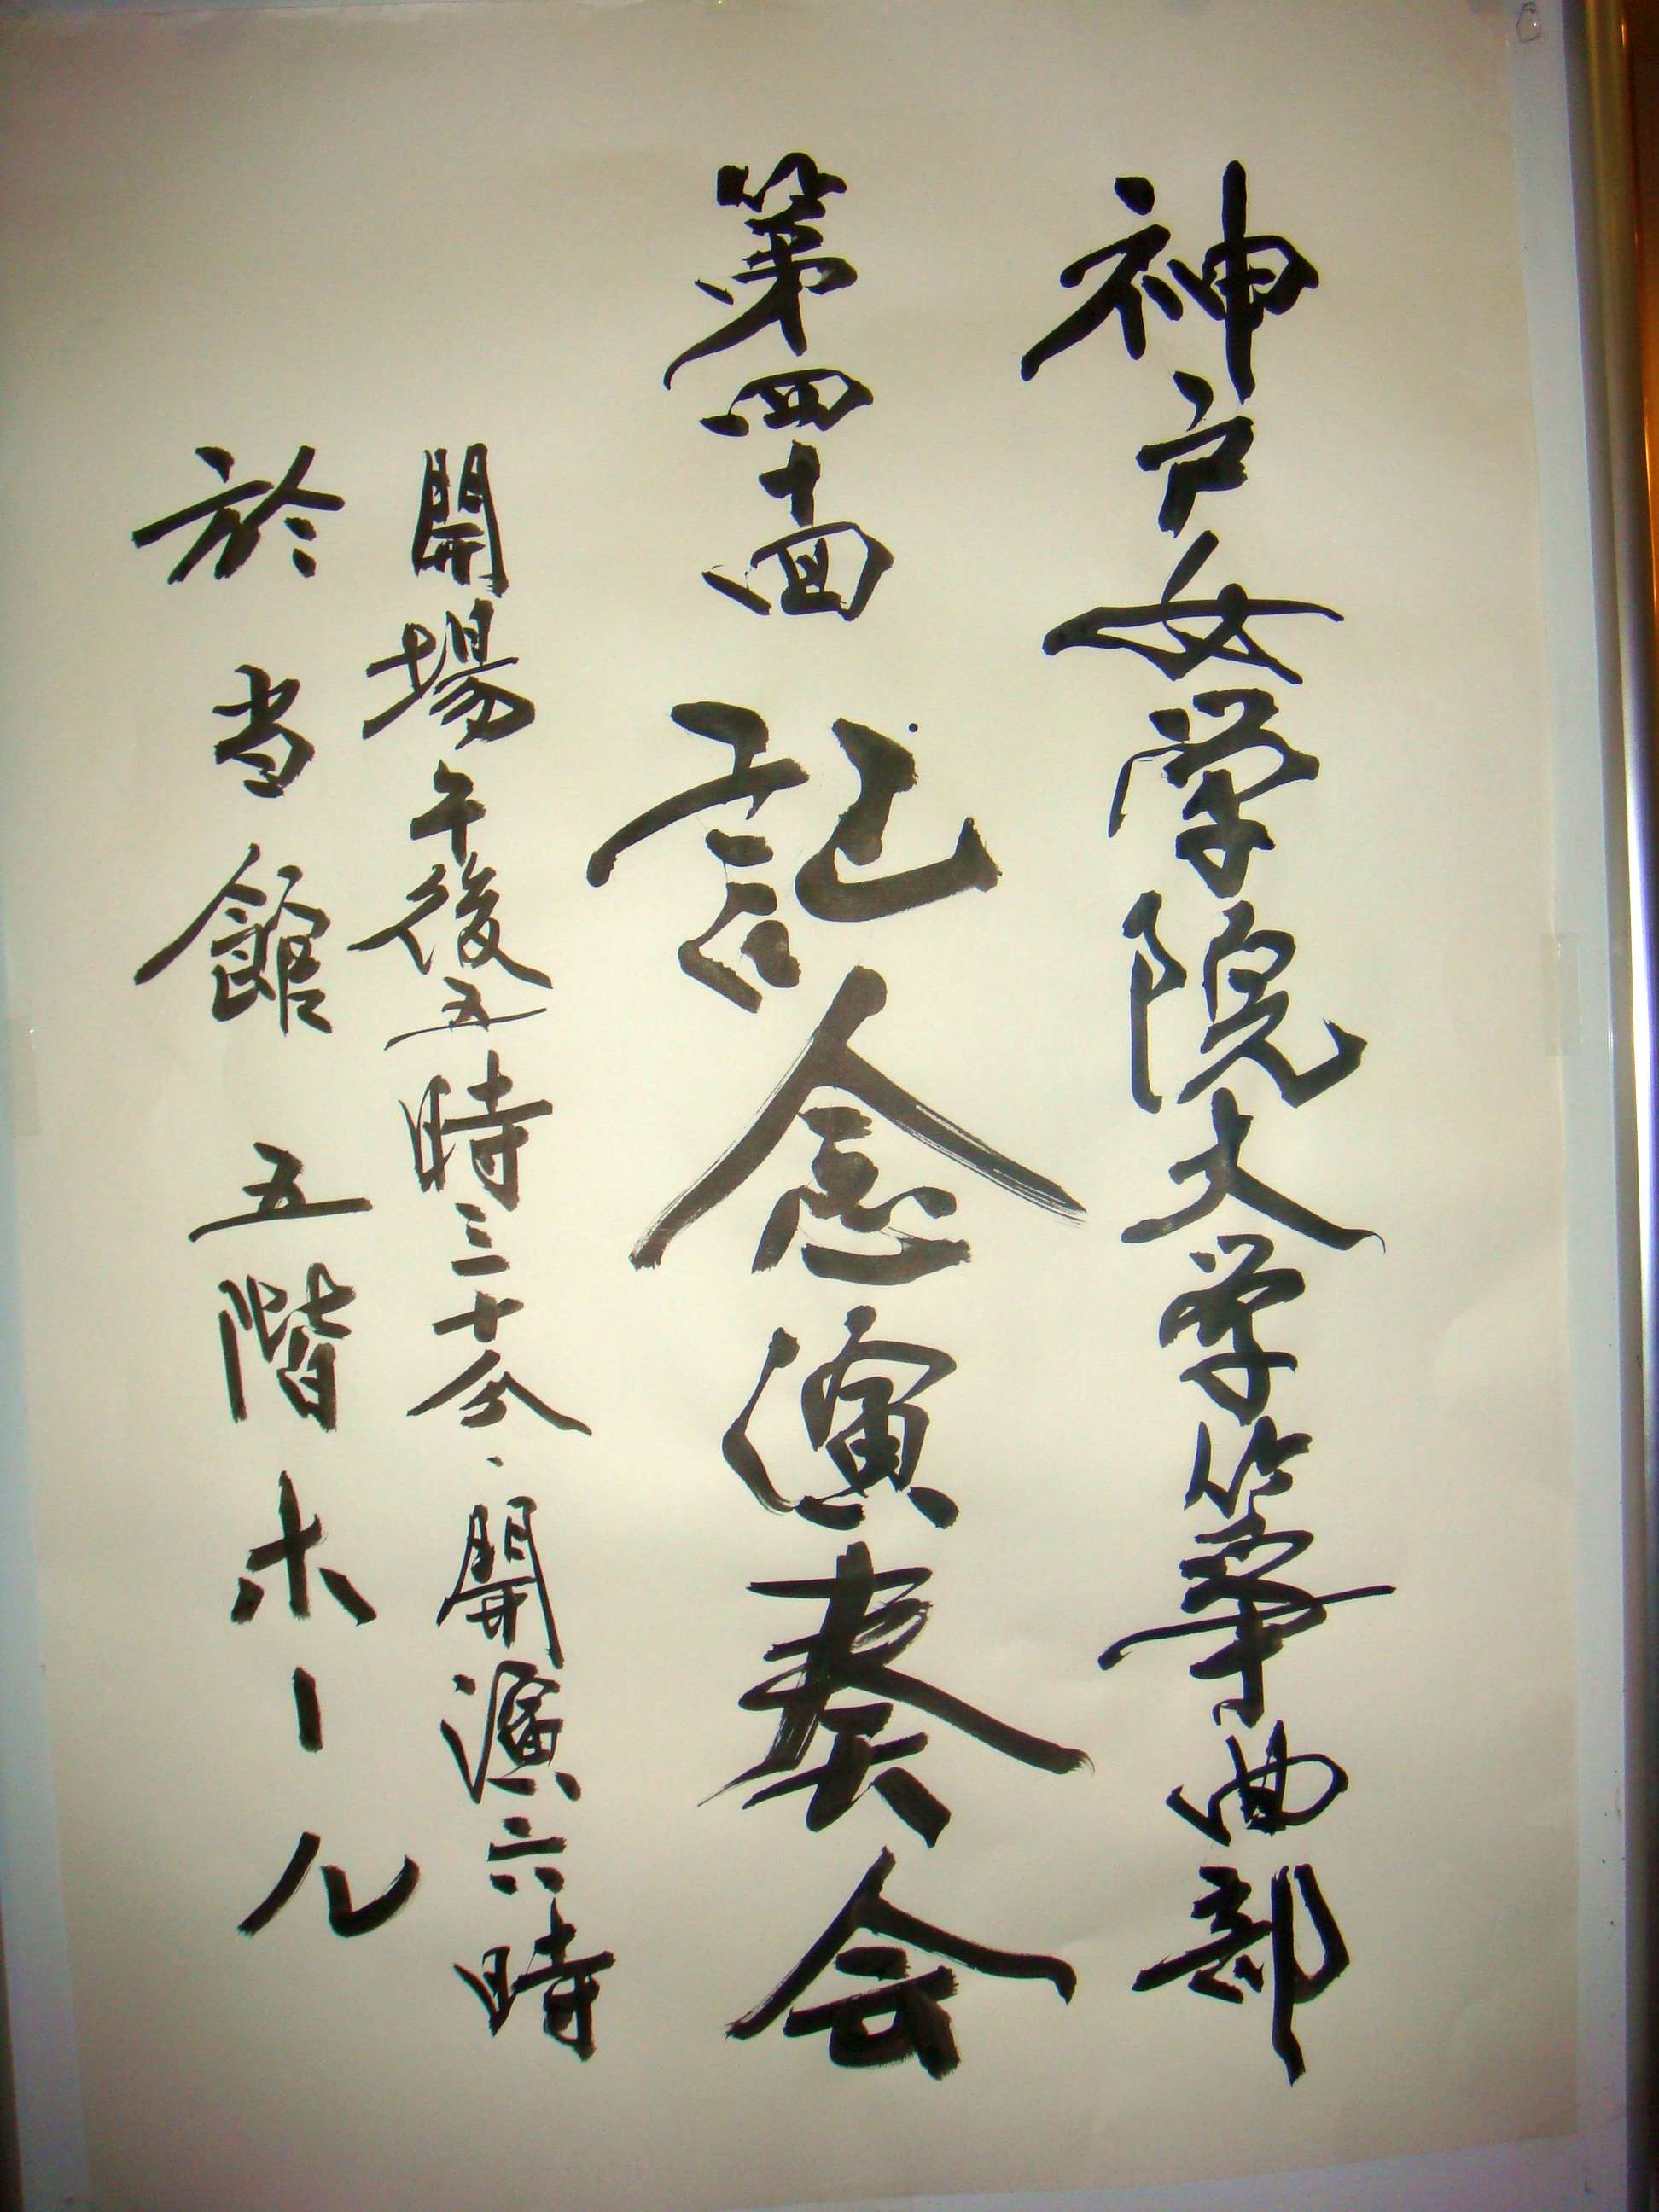 神戸女学院大学箏曲部
第四十回 記念演奏会
開場午後五時三十分、開演六時
於 当館 五階ホール